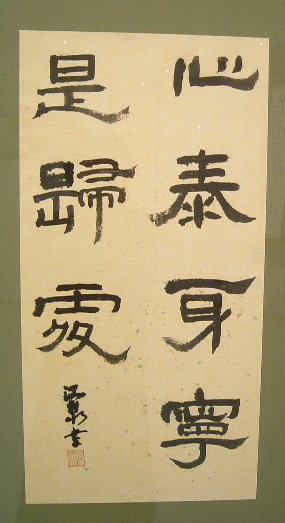 心泰身寧
是歸處